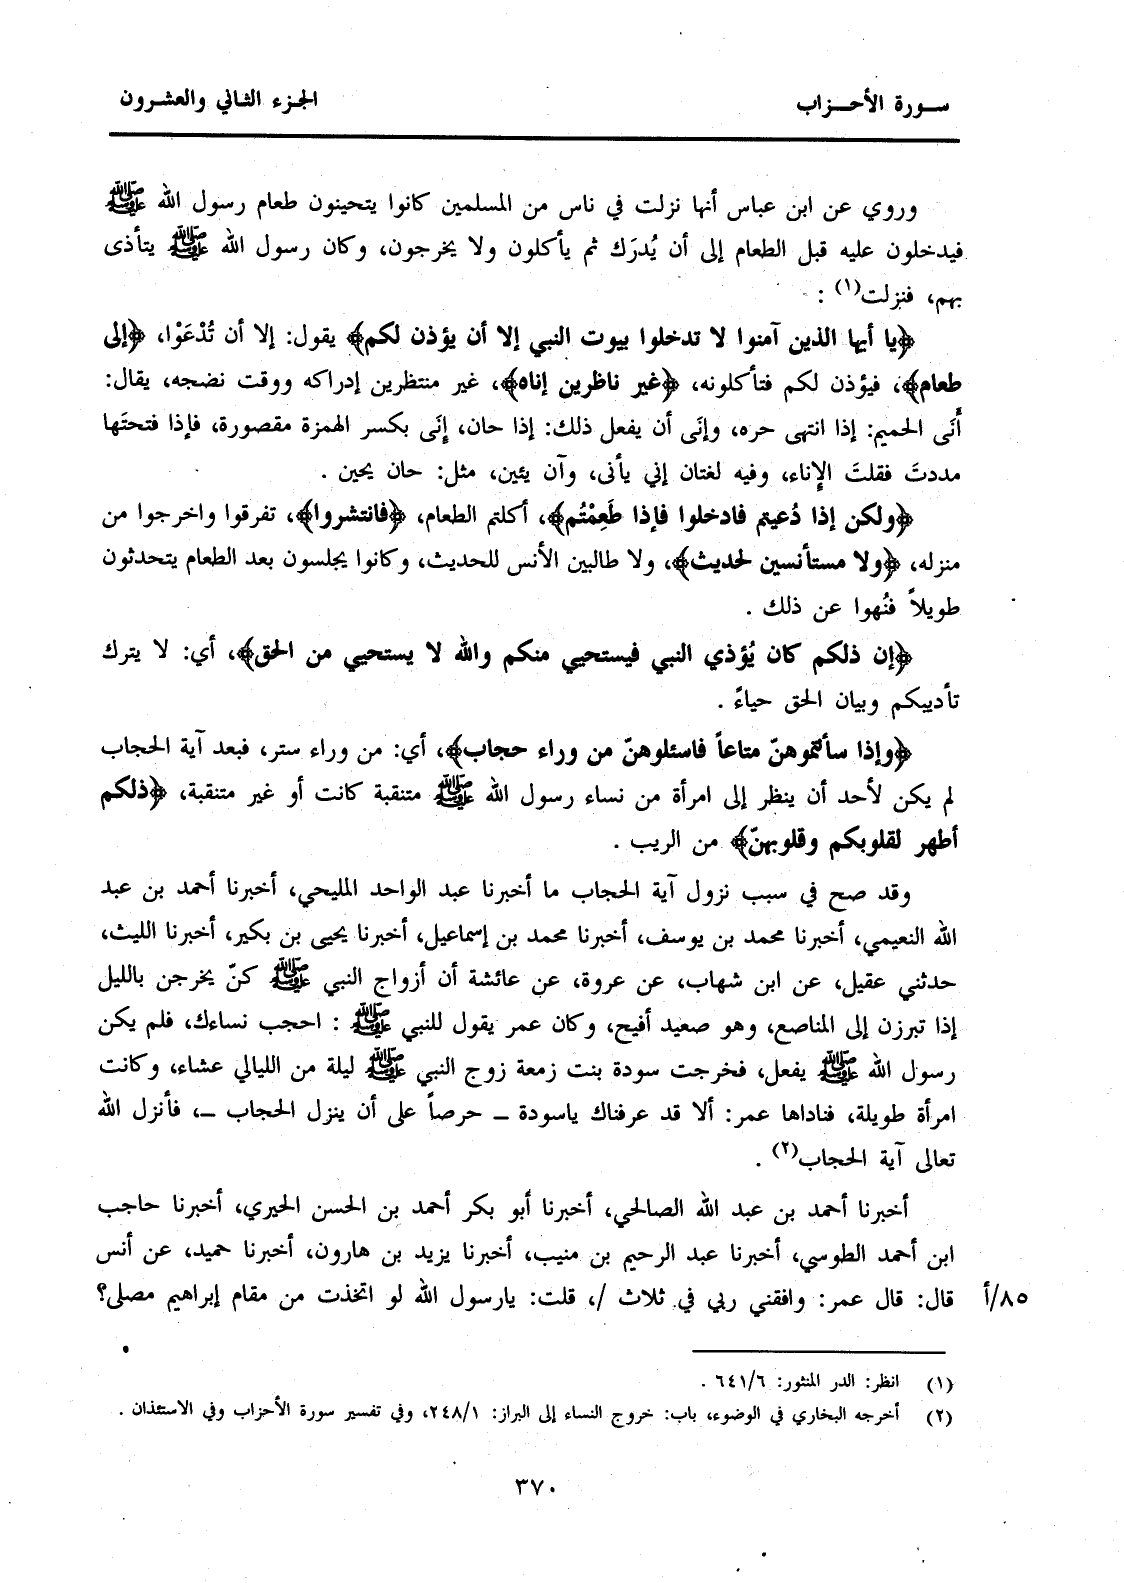 سورة الأحزاب
الجزء الثاني والعشرون
وروي عن ابن عباس أنها نزلت في ناس من المسلمين كانوا يتحينون طعام رسول الله ﷺ
فيدخلون عليه قبل الطعام إلى أن يُدرَك ثم يأكلون ولا يخرجون، وكان رسول الله ﷺ يتأذى
بهم، فنزلت(١) :
﴿يا أيها الذين آمنوا لا تدخلوا بيوت النبي إلا أن يؤذن لكم﴾ يقول: إلا أن تُدْعَوْا، ﴿إلى
طعام﴾، فيؤذن لكم فتأكلونه، ﴿غير ناظرين إناه﴾، غير منتظرين إدراكه ووقت نضجه، يقال:
أَنَى الحميم: إذا انتهى حره، وإنَى أن يفعل ذلك: إذا حان، إِنَى بكسر الهمزة مقصورة، فإذا فتحتَها
مددتَ فقلتَ الإناء، وفيه لغتان إني يأنى، وآن يئين، مثل: حان يحين .
﴿ولكن إذا دُعيتم فادخلوا فإذا طَعِمْتُم﴾، أكلتم الطعام، ﴿فانتشروا﴾، تفرقوا واخرجوا من
منزله، ﴿ولا مستأنسين لحديث﴾، ولا طالبين الأنس للحديث، وكانوا يجلسون بعد الطعام يتحدثون
طويلاً فنُهوا عن ذلك .
﴿إن ذلكم كان يُؤذي النبي فيستحيي منكم والله لا يستحيي من الحق﴾، أي: لا يترك
تأديبكم وبيان الحق حياءً .
﴿وإذا سألتموهنّ متاعاً فاسئلوهنّ من وراء حجاب﴾، أي: من وراء ستر، فبعد آية الحجاب
لم يكن لأحد أن ينظر إلى امرأة من نساء رسول الله ﷺ متنقبة كانت أو غير متنقبة، ﴿ذلكم
أطهر لقلوبكم وقلوبهنّ﴾ من الريب .
وقد صح في سبب نزول آية الحجاب ما أخبرنا عبد الواحد المليحي، أخبرنا أحمد بن عبد
الله النعيمي، أخبرنا محمد بن يوسف، أخبرنا محمد بن إسماعيل، أخبرنا يحيى بن بكير، أخبرنا الليث،
حدثني عقيل، عن ابن شهاب، عن عروة، عن عائشة أن أزواج النبي ﷺ كنّ يخرجن بالليل
إذا تبرزن إلى المناصع، وهو صعيد أفيح، وكان عمر يقول للنبي ﷺ : احجب نساءك، فلم يكن
رسول الله ﷺ يفعل، فخرجت سودة بنت زمعة زوج النبي ﷺ ليلة من الليالي عشاء، وكانت
امرأة طويلة، فناداها عمر: ألا قد عرفناك ياسودة ــ حرصاً على أن ينزل الحجاب ــ، فأنزل الله
تعالى آية الحجاب(٢) .
أخبرنا أحمد بن عبد الله الصالحي، أخبرنا أبو بكر أحمد بن الحسن الحيري، أخبرنا حاجب
ابن أحمد الطوسي، أخبرنا عبد الرحيم بن منيب، أخبرنا يزيد بن هارون، أخبرنا حميد، عن أنس
قال: قال عمر: وافقني ربي في ثلاث /، قلت: يارسول الله لو اتخذت من مقام إبراهيم مصلى؟
٨٥/أ
(١) انظر: الدر المنثور: ٦٤١/٦ .
(٢) أخرجه البخاري في الوضوء، باب: خروج النساء إلى البراز: ٢٤٨/١، وفي تفسير سورة الأحزاب وفي الاستئذان .
٣٧٠